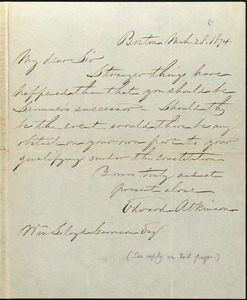 Boston Mch 28. 1874
My dear Sir
Stranger things have
happened than that you should be
Sumner's successor - Should th
be the event would there be any
obstacle on your own part to your
qualifying under the constitution
Yours truly
present alone
Edward Atkinson
Wm Lloyd Garrison Esq
(See reply on 3rd page.)